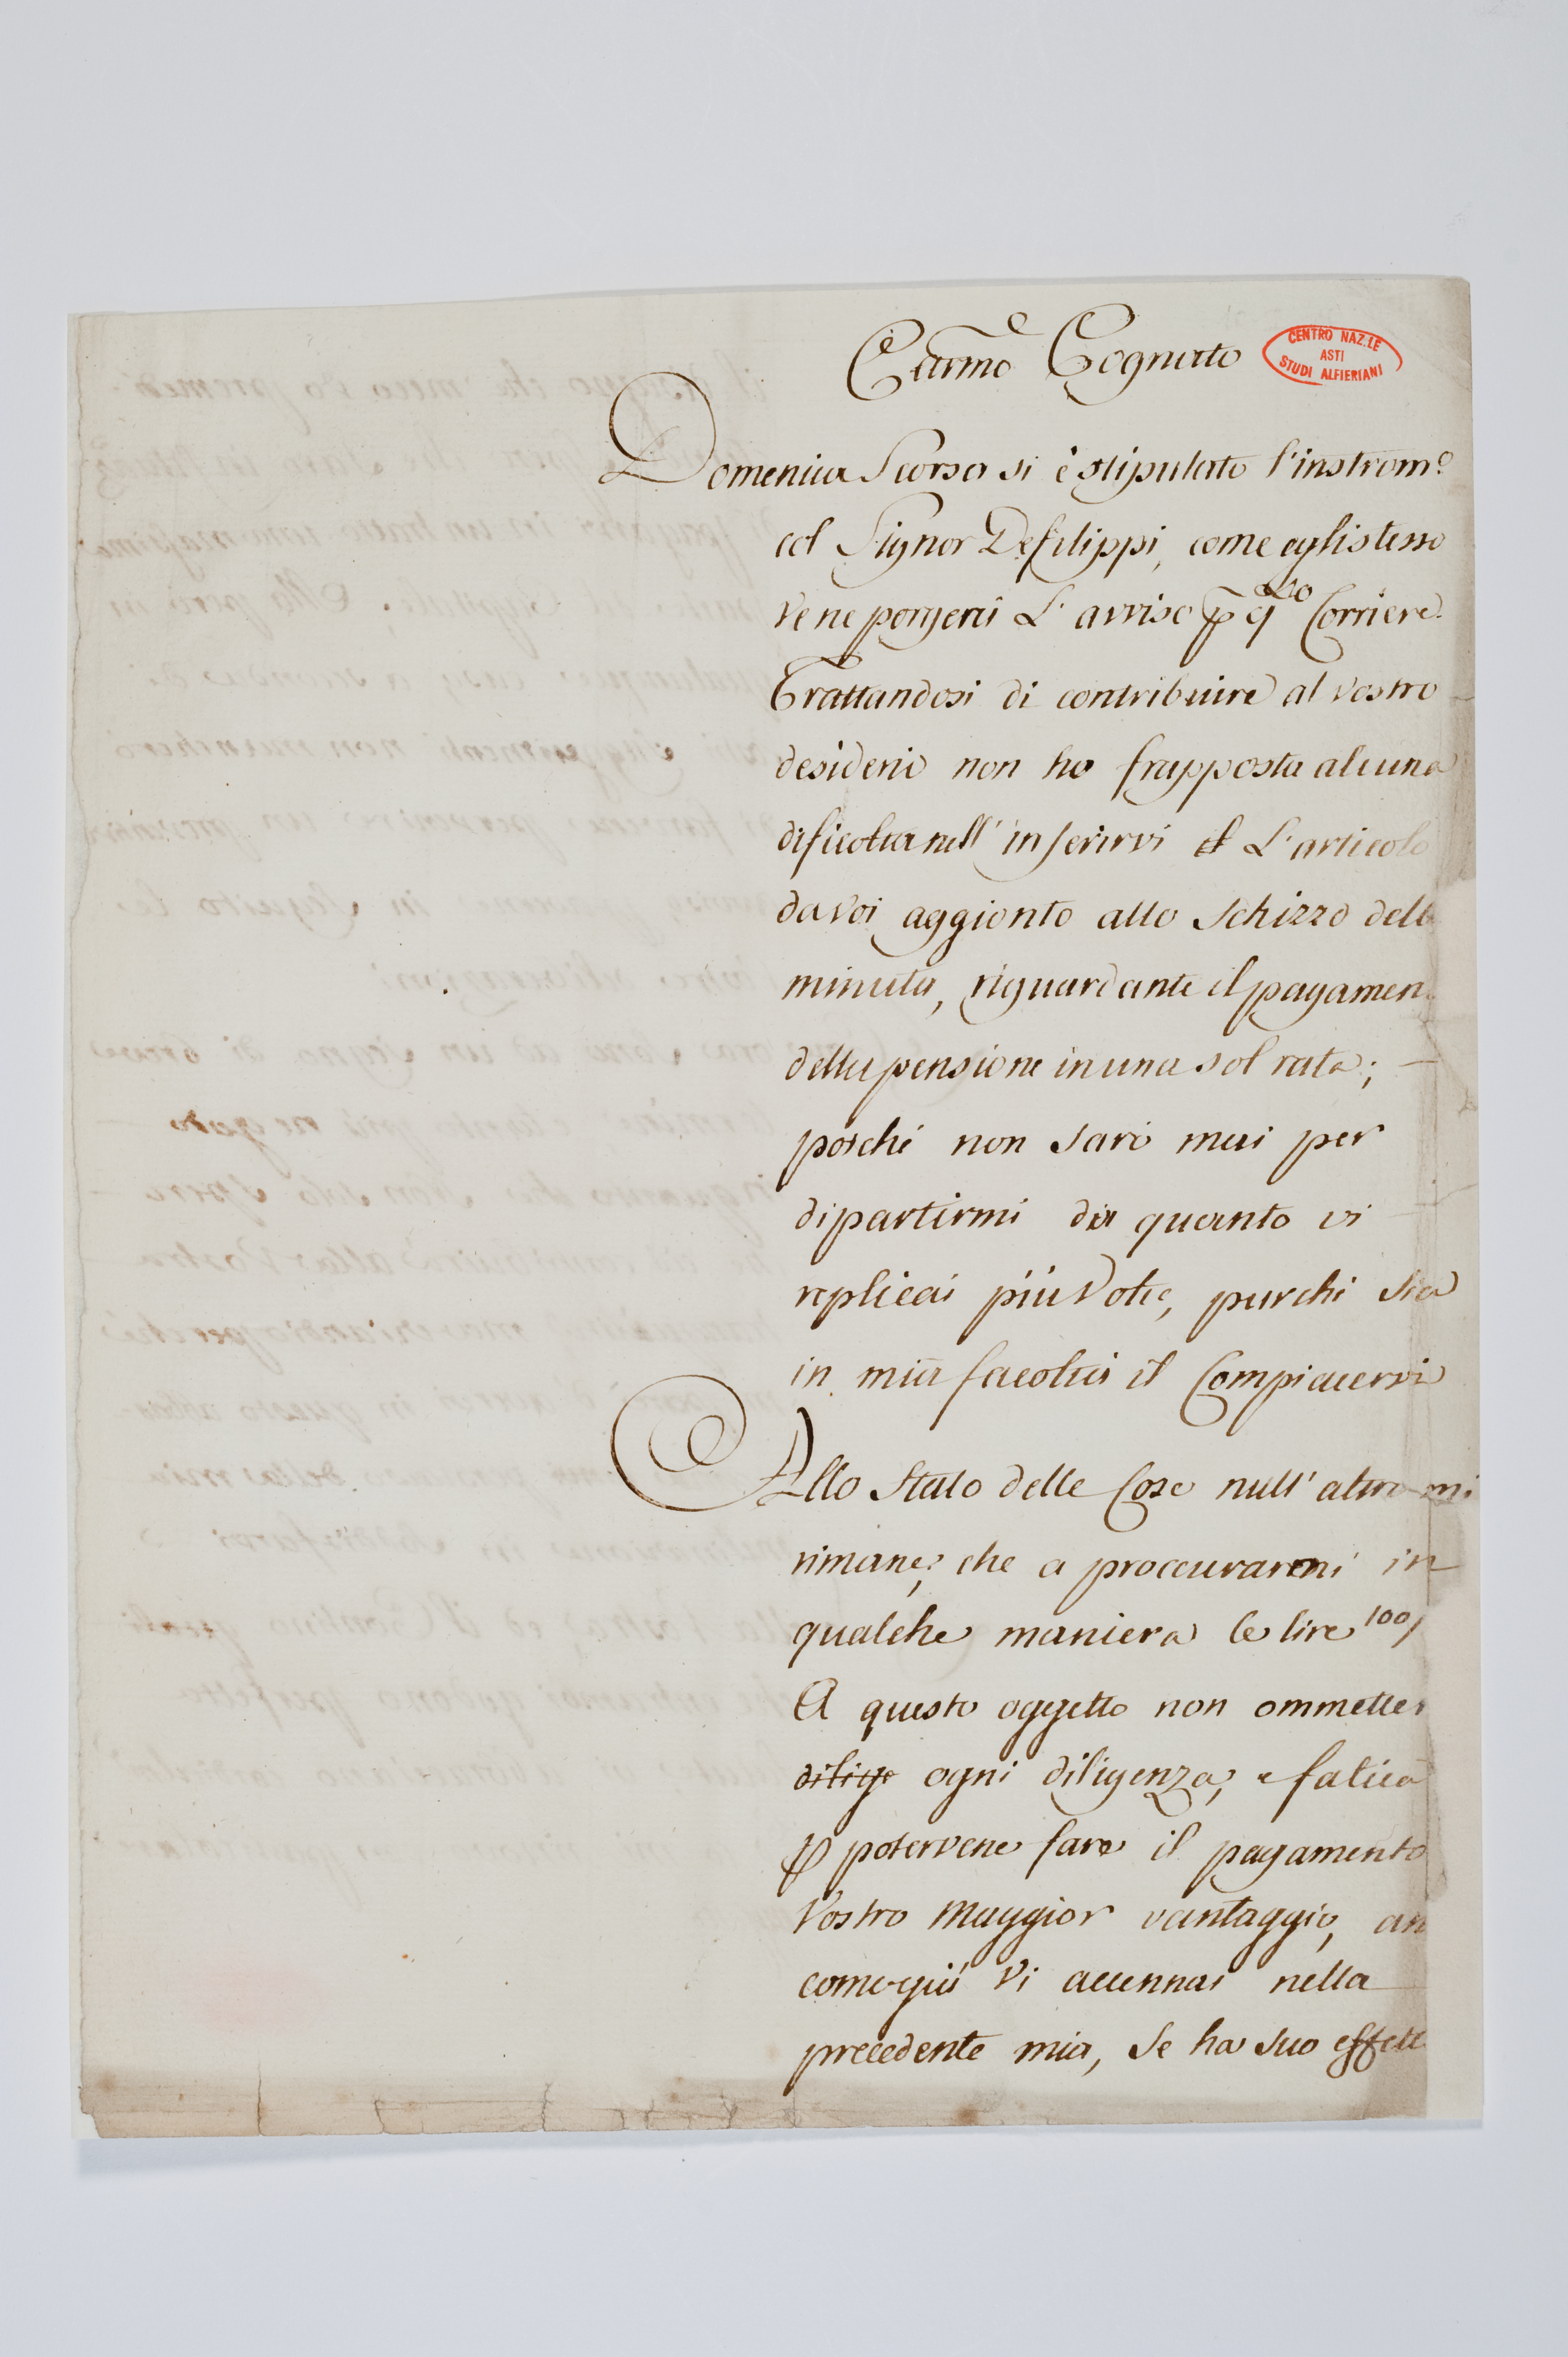 Carmo Cognato
CENTRO NAZ.LE
ASTI
STUDI ALFIERIANI
Domenica Scorsa si è stipulato l'instrom.o
col Signor Defilippi, come egli stesso
ve ne porgerà L'avviso p q.to Corriere.
Trattandosi di contribuire al vostro
desiderio non ho frapposta alcuna
dificoltà nell' inserirvi il L'articolo
da voi aggionto allo Schizzo dell
minuta, riguardante il pagamen
della pensione in una sol rata;
poichè non sarò mai per
dipartirmi da quanto vi
replicai più Volte, purchè Sia
in mia facoltà il Compiacervi
Allo Stato delle Cose null' altro mi
rimane, che a proccurarmi in
qualche maniera le lire 100/
A questo oggetto non ommetter
dilige ogni diligenza, e fatica
p potervene fare il pagamento
Vostro Maggior vantaggio, an
come già Vi accennai nella
precedente mia, Se ha Suo effett